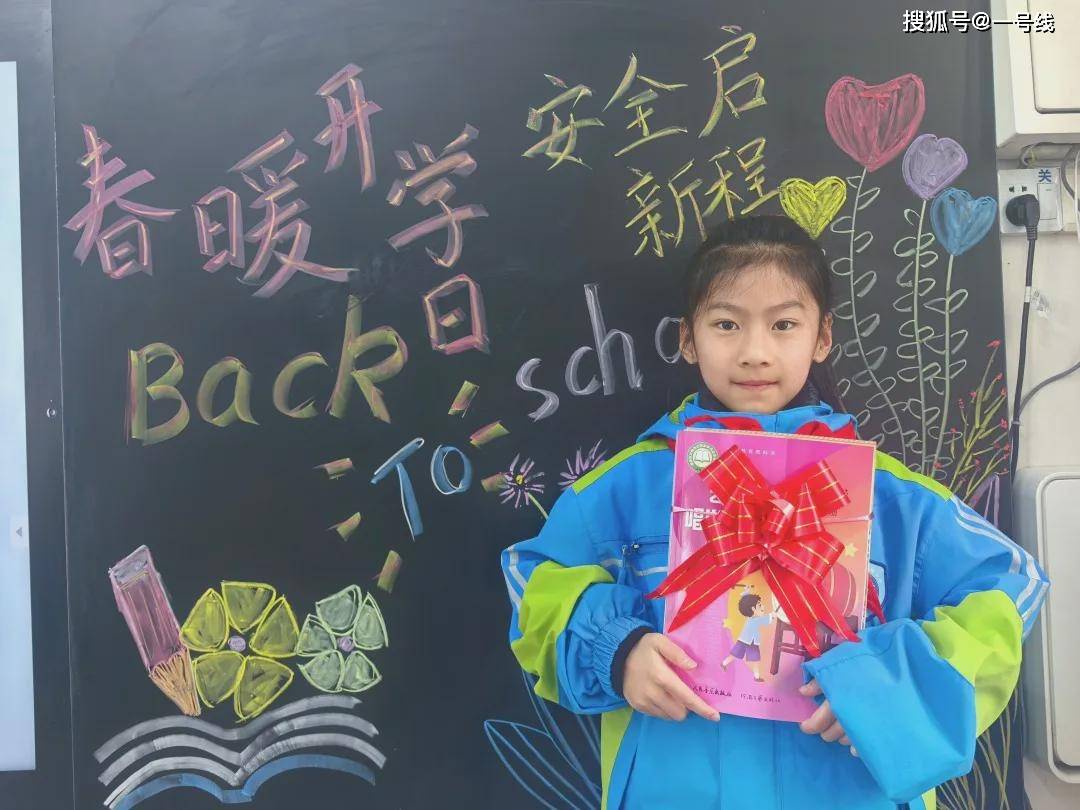 搜狐号@一号线
春暖开学日
安全启
新程
Back
To
scho
关